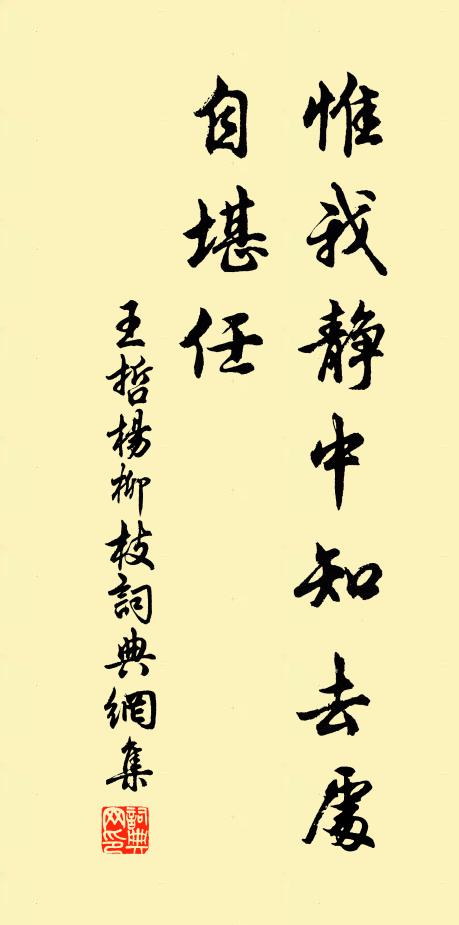 惟我静中知去處
自堪任
王哲楊柳枝詞典網集
詞典網印